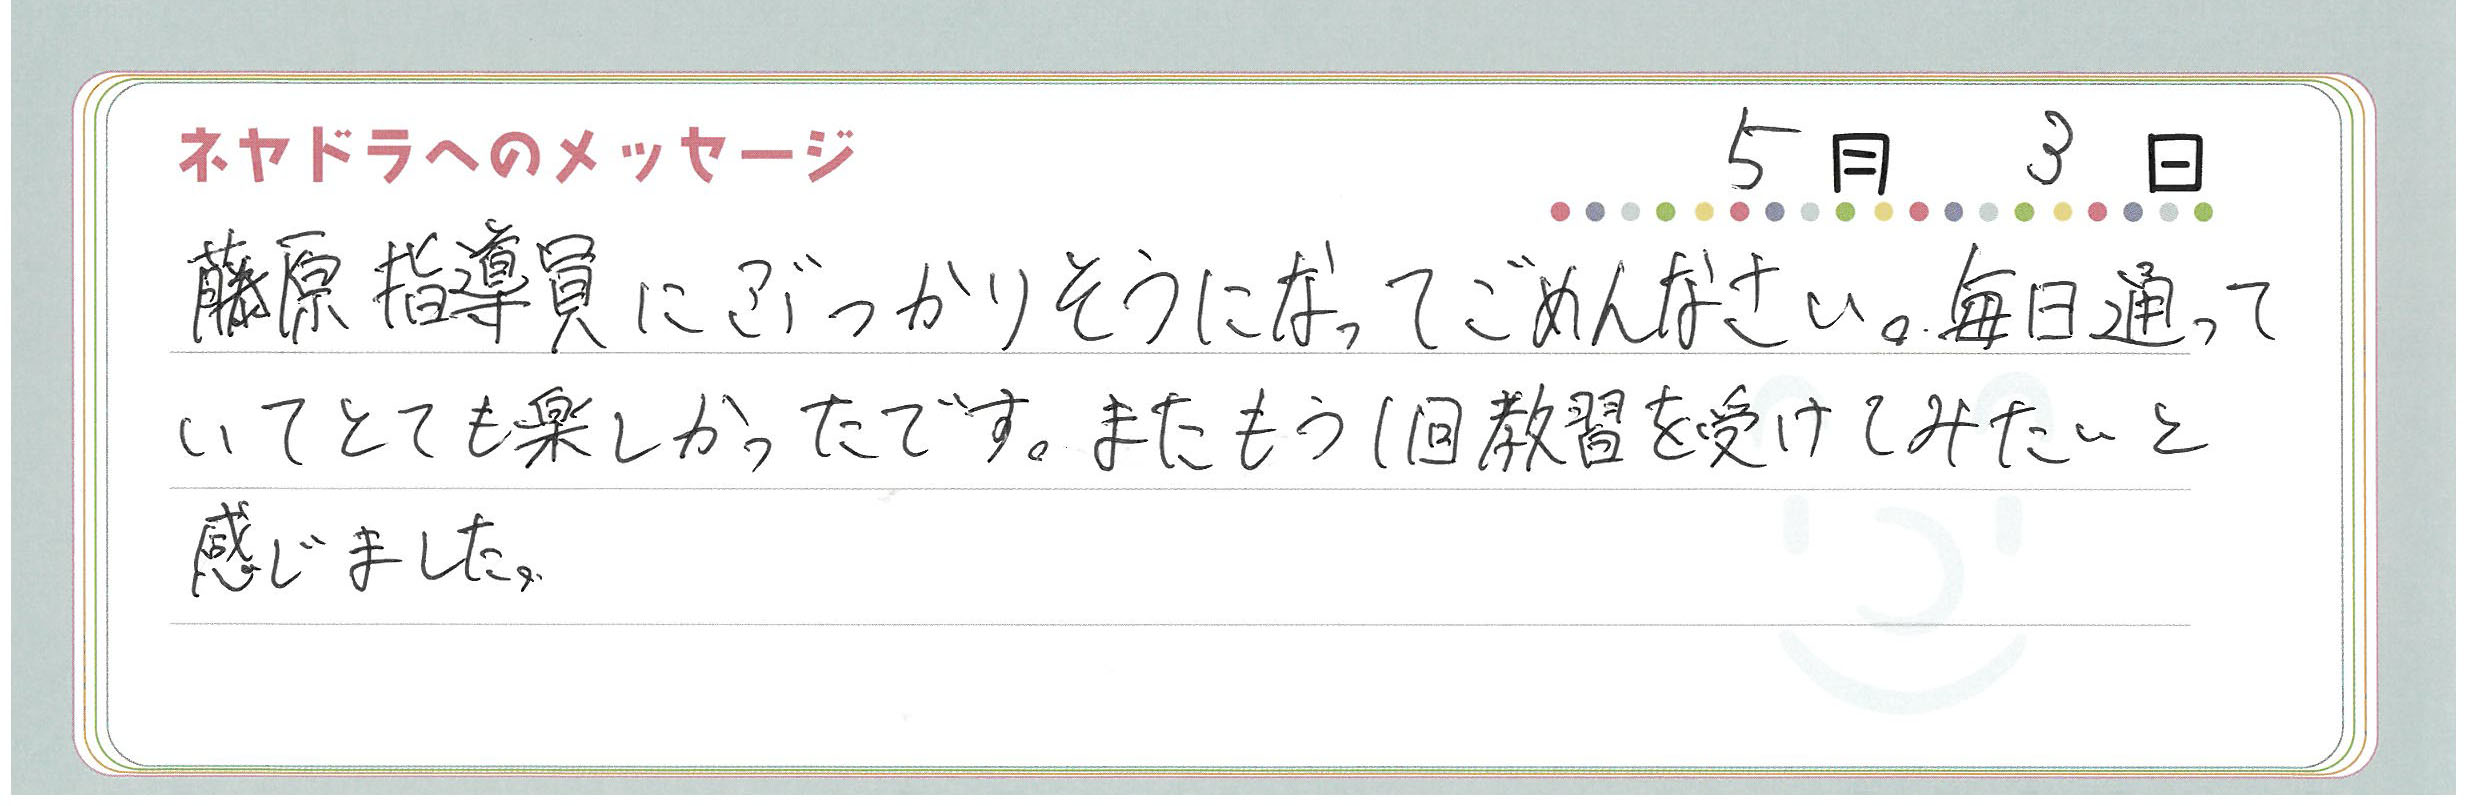 ネヤドラへのメッセージ
5月 3日
藤原指導員にぶつかりそうになってごめんなさい。毎日通って
いてとても楽しかったです。またもう1回教習を受けてみたいと
感じました。